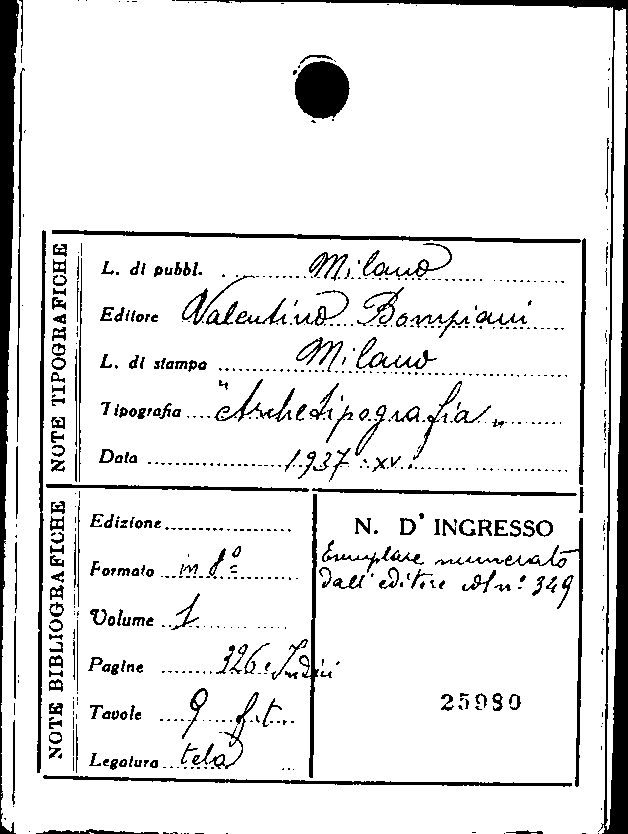 NOTE TIPOGRAFICHE
L. di pubbl. Milano
Editore Valentino Bompiani
L. di stampa Milano
Tipografia "Archetipografia"
Data 1937 . xv.
NOTE BIBLIOGRAFICHE
Edizione
Formato in 8º
Volume 1
Pagine 326 e Indici
Tavole 9 f.t.
Legatura tela
N. D' INGRESSO
Esemplare numerato
dall'editore al nº 349
25980